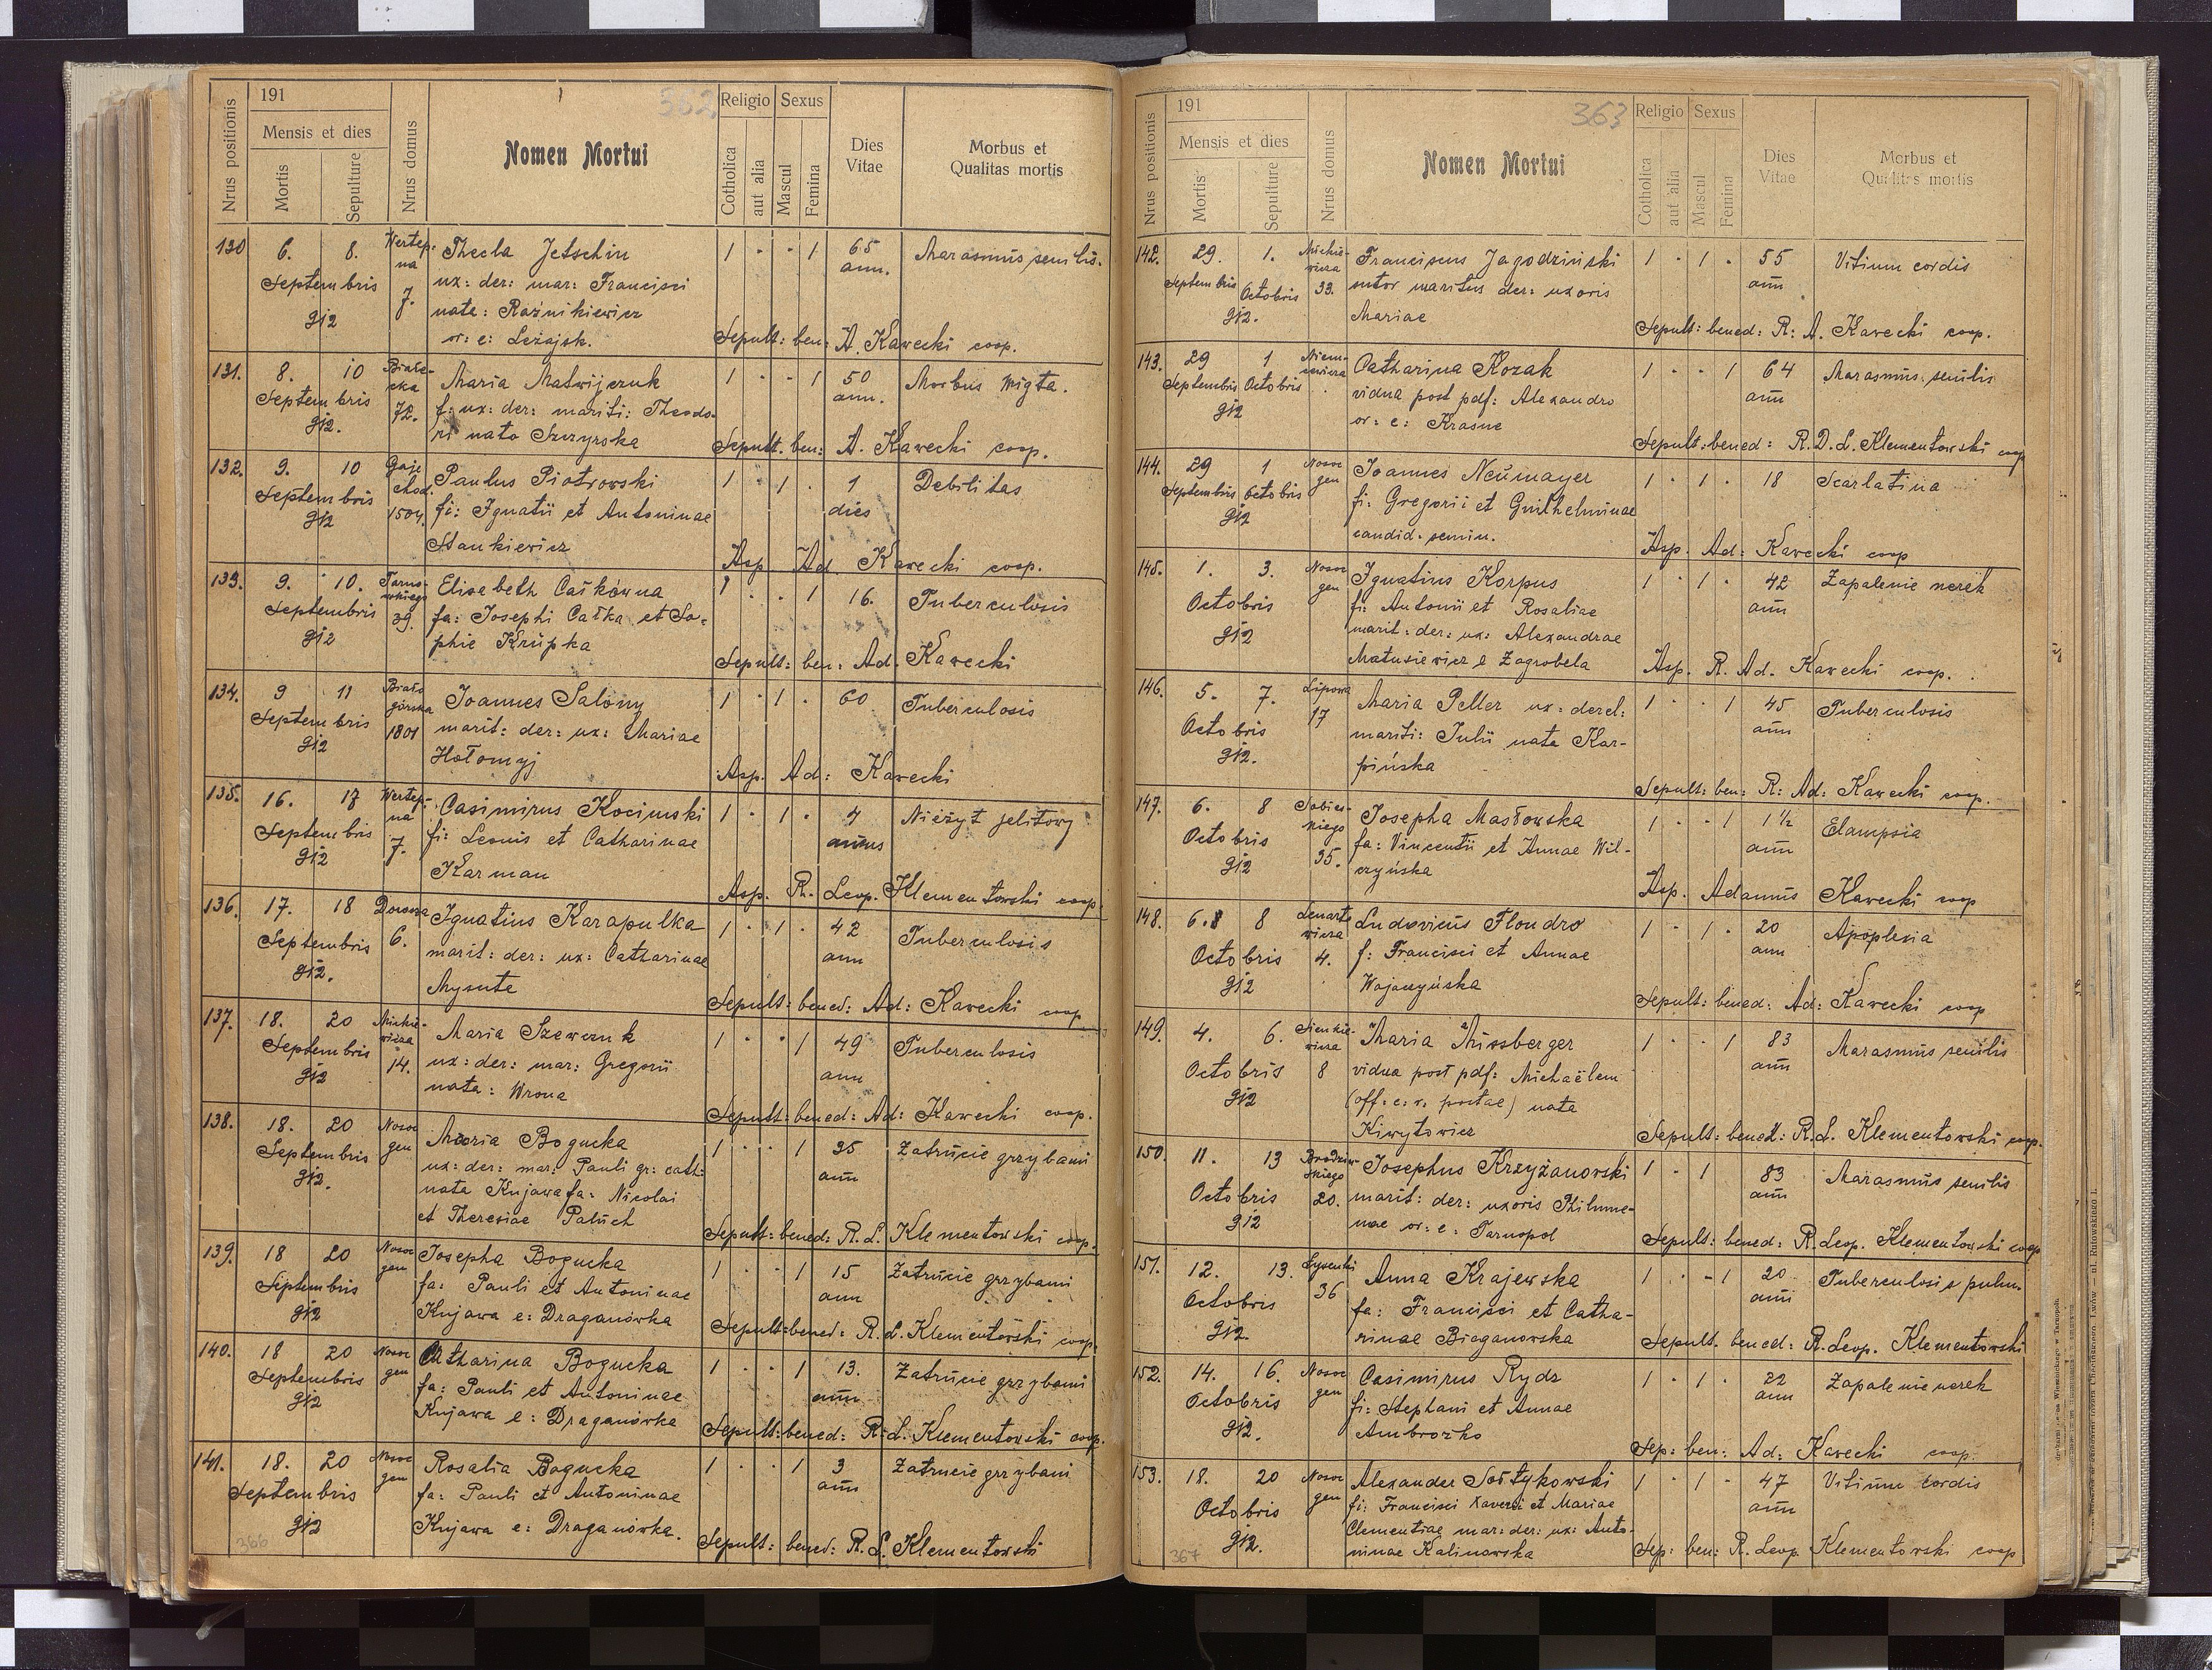 362
191
Nrus positionis
Mensis et dies
Mortis
Sepulture
Nrus domus
Nomen Mortui
Religio
Sexus
Cotholica
aut alia
Mascul
Femina
Dies Vitae
Morbus et Qualitas mortis
130 6. 8. Septembris 912 Wertep:na 7.
Thecla Jetschin
ux: der: mar: Francisci
nata: Raźnikiewicz
or: e: Leżajsk.
1 · · 1 65 ann. Marasmus senilis.
Sepult: ben: A. Kawecki coop.
131. 8. 10 Septembris 912. 72.
Maria Matwijczuk
f: ux: der: mariti: Theodo-
ri nata Szczyrska
1 · · 1 50 ann. Morbus Wrigta.
Sepult. ben: A. Kawecki coop.
132. 9. 10 Septembris 912 Gaje chod. 1504.
Paulus Piotrowski
fi: Ignatii et Antoninae
Stankiewicz
1 · 1 · 1 dies Debilitas
Asp. Ad. Kawecki coop.
133. 9. 10. Septembris 912 Tarnowskiego 39.
Elisabeth Całkówna
fa: Josephi Całka et So-
phie Krupka
1 · · 1 16. Tuberculosis
Sepult: ben: Ad. Kawecki
134. 9 11 Septembris 912 Białogórska 1801
Joannes Salony
marit: der: ux: Mariae
Hołomyj
1 · 1 · 60 Tuberculosis
Asp. Ad: Kawecki
135. 16. 17 Septembris 912 Wertep:na 7.
Casimirus Kocimski
fi: Leonis et Catharinae
Karman
1 · 1 · annus Nieżyt jelitowy
Asp. R. Leop. Klementowski coop.
136. 17. 18 Septembris 912. 6.
Ignatius Karapulka
marit: der: ux: Catharinae
Mysute
1 · 1 · 42 ann Tuberculosis
Sepult: bened: Ad: Kawecki coop
137. 18. 20 Septembris 912 Mickiewicza 14.
Maria Szewczuk
ux: der: mar: Gregorii
nata: Wrona
1 · · 1 49 ann Tuberculosis
Sepult: bened: Ad: Kawecki coop.
138. 18. 20 Septembris 912. Nosogen
Maria Bogucka
ux: der: mar: Pauli gr: cath:
nata Kujawa fa: Nicolai
et Theresiae Paluch
1 · · 1 35 ann Zatrucie grzybami
Sepult: bened: R. L. Klementowski coop.
139. 18 20 Septembris 912 Nosogen
Josepha Bogucka
fa: Pauli et Antoninae
Kujawa e: Draganówka
1 · · 1 15 ann Zatrucie grzybami
Sepult: bened: R. L. Klementowski coop.
140. 18 20 Septembris 912 Nosogen
Catharina Bogucka
fa: Pauli et Antoninae
Kujawa e: Draganówka
1 · · 1 13. ann Zatrucie grzybami
Sepult: bened: R. L. Klementowski coop.
141. 18. 20 Septembris 912 Nosogen
Rosalia Bogucka
fa: Pauli et Antoninae
Kujawa e: Draganówka.
1 · · 1 3 ann Zatrucie grzybami
Sepult: bened: R. L. Klementowski
366
363
191
Nrus positionis
Mensis et dies
Mortis
Sepulture
Nrus domus
Nomen Mortui
Religio
Sexus
Cotholica
aut alia
Mascul
Femina
Dies Vitae
Morbus et Qualitas mortis
142. 29. Septembris 1. Octobris 912. Mickiewicza 33.
Franciscus Jagodziński
sutor maritus der: uxoris
Mariae
1 · 1 · 55 ann Vitium cordis
Sepult: bened: R: A. Kawecki coop.
143. 29 Septembris 1 Octobris 912 Niemcewicza
Catharina Kozak
vidua post pdf: Alexandro
or: e: Krasne
1 · · 1 64 ann Marasmus senilis
Sepult: bened: R. D. L. Klementowski coop
144. 29 Septembris 1 Octobris 912 Nosogen
Joannes Neümayer
fi: Gregorii et Guilhelminae
candid. semin.
1 · 1 · 18 Scarlatina
Asp. Ad: Kawecki coop
145. 1. 3. Octobris 912 Nosogen
Ignatius Korpus
fi: Antonii et Rosaliae
marit: der: ux: Alexandrae
Matusiewicz e Zagrobela
1 · 1 · 42 ann Zapalenie nerek
Asp. R. Ad. Kawecki coop.
146. 5. 7. Octobris 912. Lipowa 17
Maria Peller ux: derel:
mariti: Julii nata Kar-
pińska
1 · · 1 45 ann Tuberculosis
Sepult: ben: R: Ad: Kawecki coop.
147. 6. 8 Octobris 912 Sobieskiego 35.
Josepha Masłowska
fa: Vincentii et Annae Wil-
czyńska
1 · · 1 1½ ann Elampsia
Asp. Adamus Kawecki coop
148. 6. 8 Octobris 912 Lenartowicza 4.
Ludovicus Flondro
f: Francisci et Annae
Wojaczyńska
1 · 1 · 20 ann Apoplexia
Sepult: bened: Ad: Kawecki coop
149. 4. 6. Octobris 912 Sienkiewicza 8
Maria Missberger
vidua post pdf: Michaëlem
(off. c. r. postae) nata
Kiwytowicz
1 · · 1 83 ann Marasmus senilis
Sepult: bened: R. L. Klementowski coop.
150. 11. 13 Octobris 912 Brodzińskiego 20.
Josephus Krzyżanowski
marit: der: uxoris Philume-
nae or: e: Tarnopol
1 · 1 83 ann Marasmus senilis
Sepult: bened: R. Leop. Klementowski coop
151. 12. 13. Octobris 912 36
Anna Krajewska
fa: Francisci et Catha-
rinae Bieganowska
1 · - 1 20 ann Tuberculosis pulm.
Sepult. bened: R. Leop. Klementowski
152. 14. 16. Octobris 912. Nosogen
Casimirus Rydz
fi: Stephani et Annae
Ambrozko
1 · 1 · 22 ann Zapalenie nerek
Sep: ben: Ad: Kawecki coop.
153. 18. 20 Octobris 912. Nosogen
Alexander Sołtykowski
fi: Francisci Xaverii et Mariae
Clementiae mar: der: ux: Anto-
ninae Kalinowska
1 · 1 - 47 ann Vitium cordis
Sep: ben: R. Leop. Klementowski coop
367